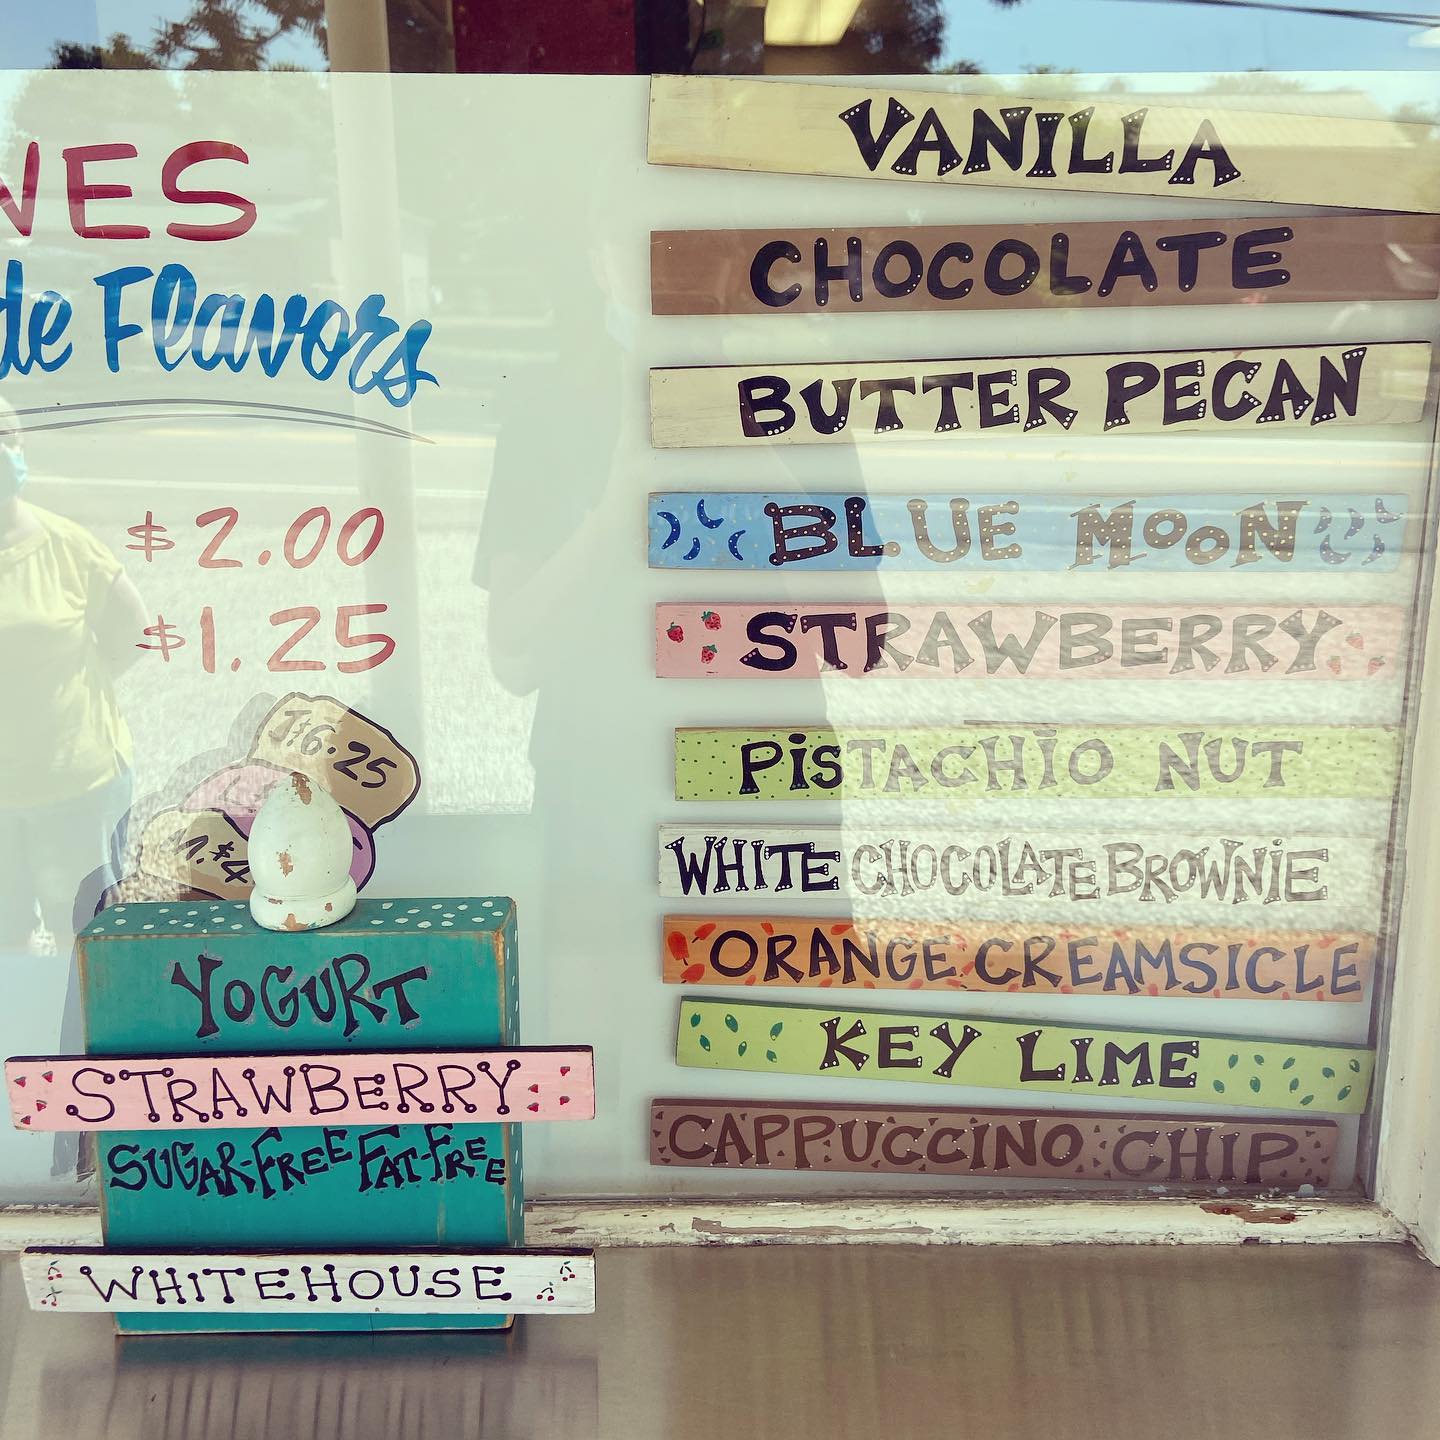 NES
de Flavors
$2.00
$1.25
J.$6.25
M.$4
YOGURT
STRAWBERRY
SUGAR-FREE FAT-FREE
WHITEHOUSE
VANILLA
CHOCOLATE
BUTTER PECAN
BLUE MOON
STRAWBERRY
PiSTACHiO NUT
WHITE CHOCOLATE BROWNiE
ORANGE CREAMSICLE
KEY LIME
CAPPUCCINO CHIP